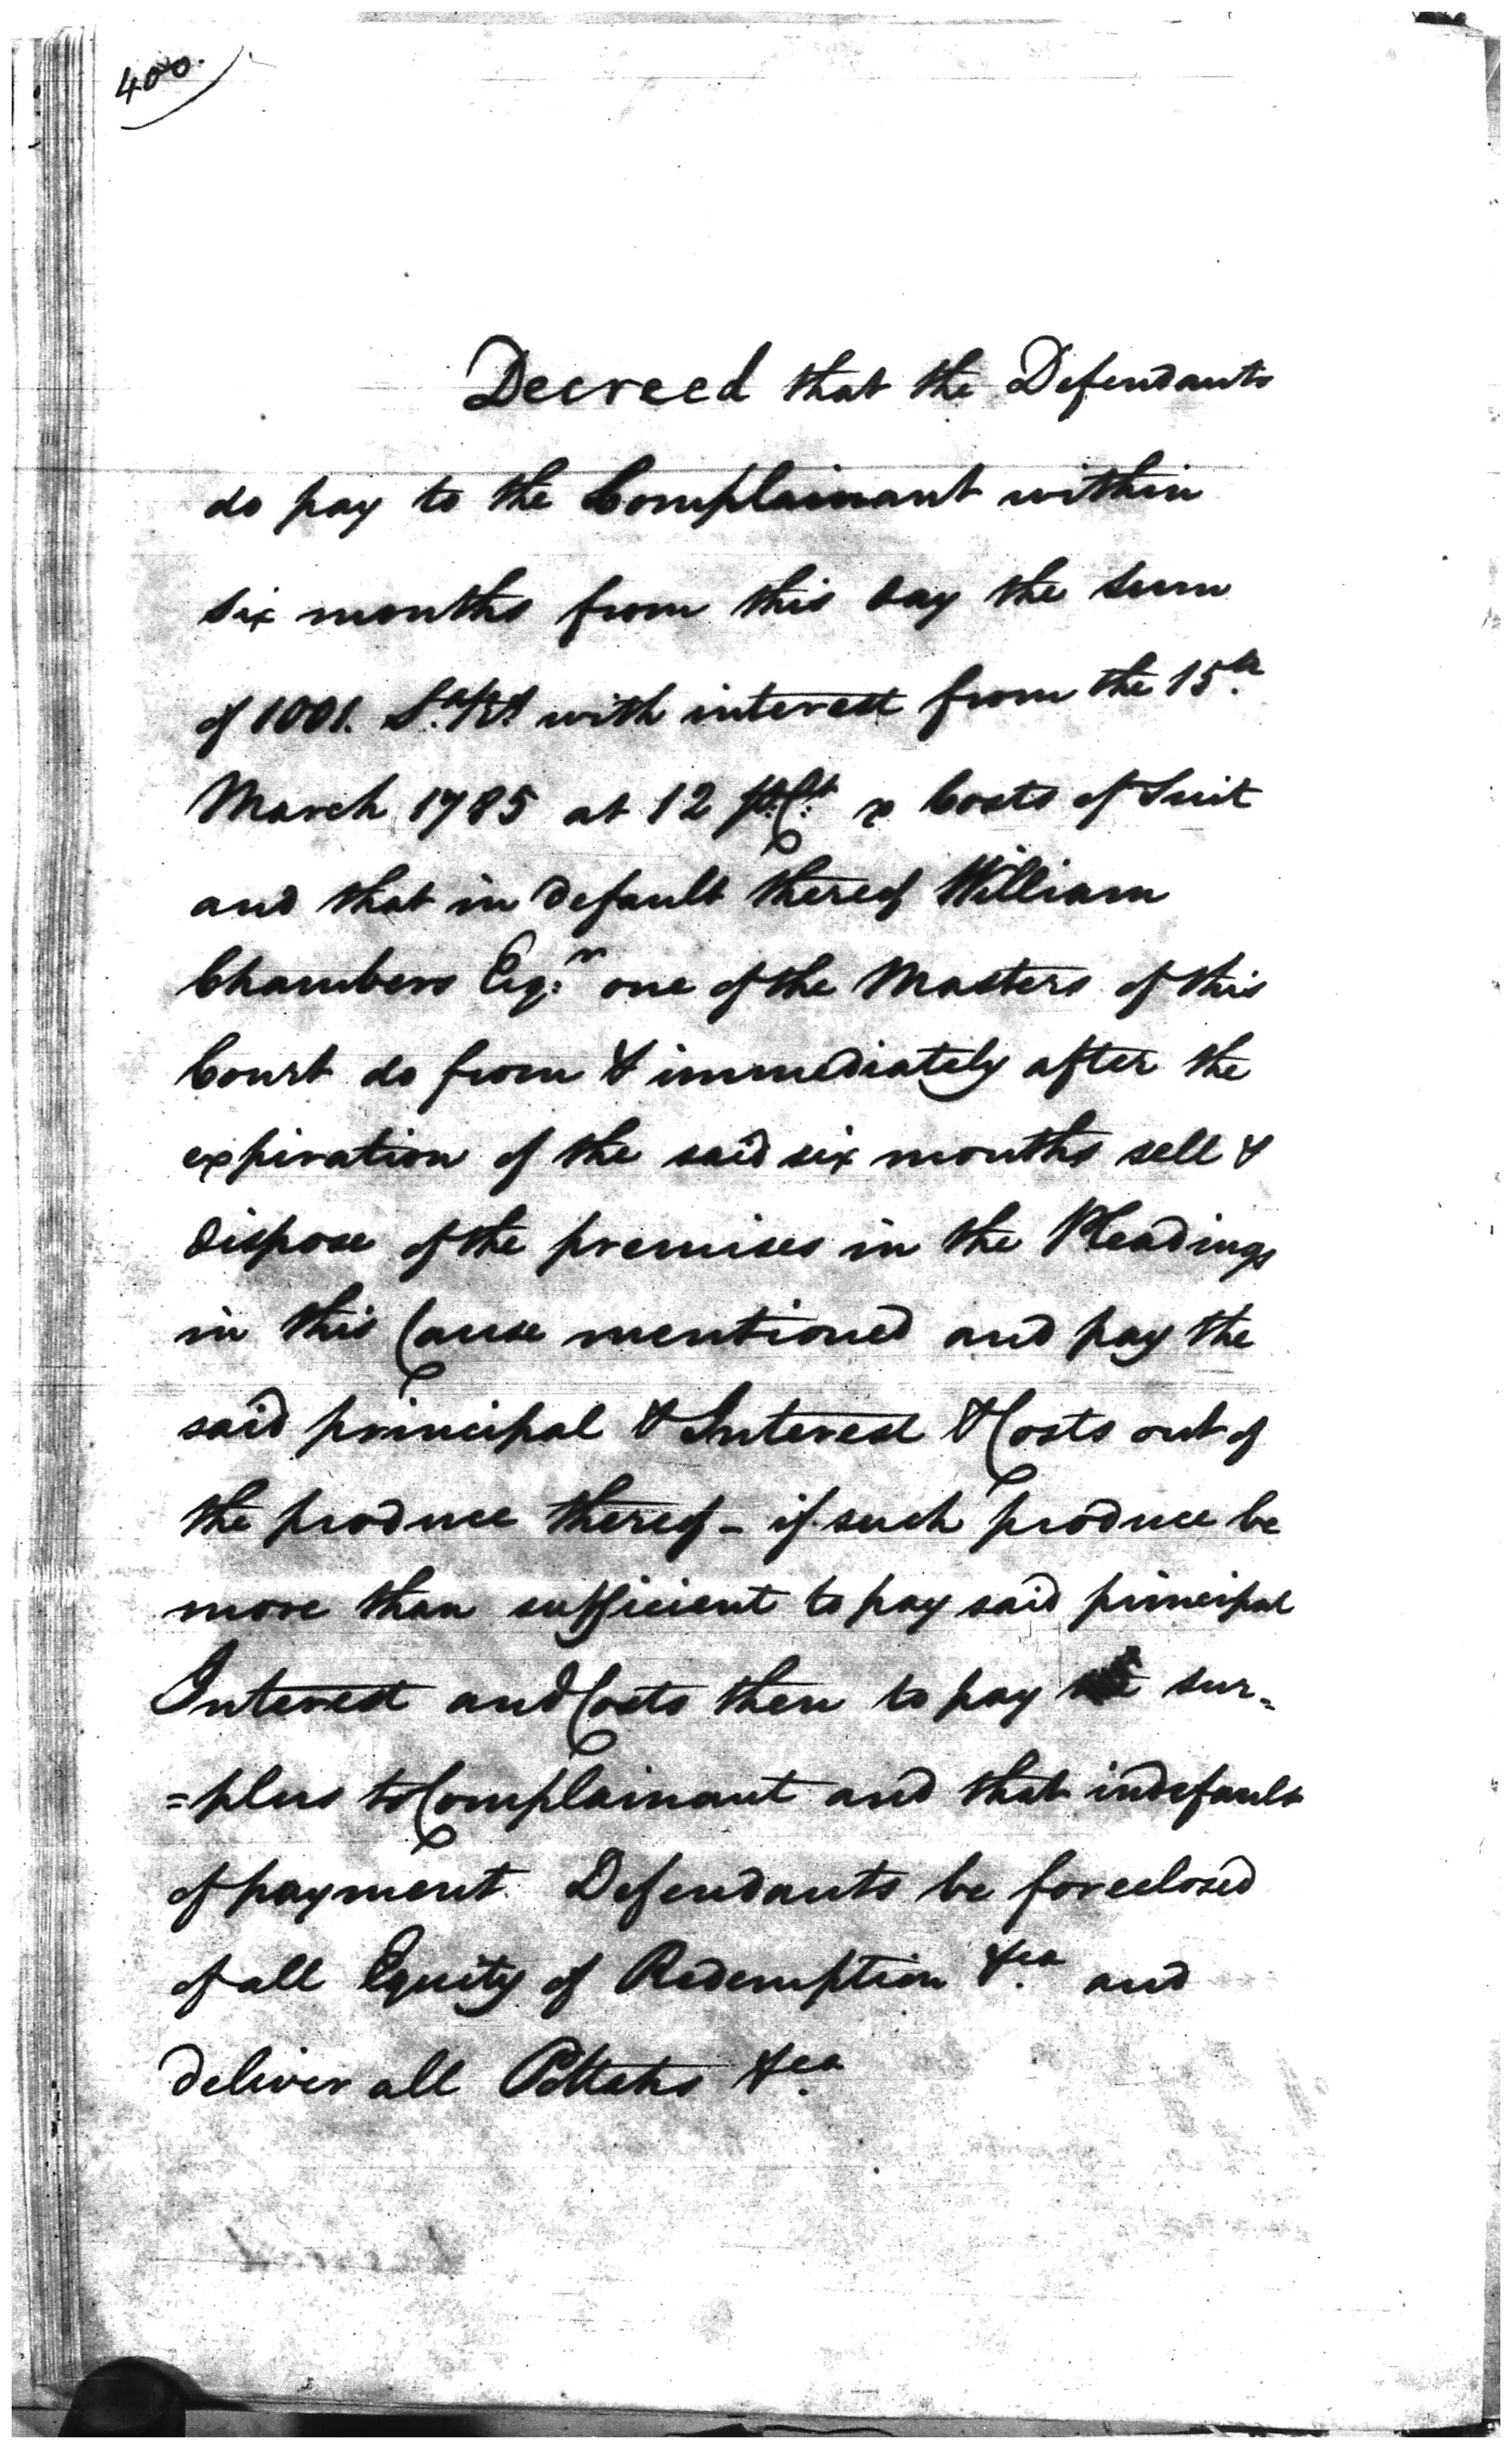 400.
Decreed that the Defendants
do pay to the Complainant within
six months from this day the sum
of 1001. Sa. Rs. with interest from the 15th
March 1785 at 12 pr. Ct. & Costs of Suit
and that in default thereof William
Chambers Esqr. one of the Masters of this
Court do from & immediately after the
expiration of the said six months sell &
dispose of the premises in the Pleadings
in this Cause mentioned and pay the
said principal & Interest & Costs out of
the produce thereof - if such produce be
more than sufficient to pay said principal
Interest and Costs then to pay sur=
=plus to Complainant and that in default
of payment Defendants be foreclosed
of all Equity of Redemption &ca. and
deliver all Pottahs &ca.